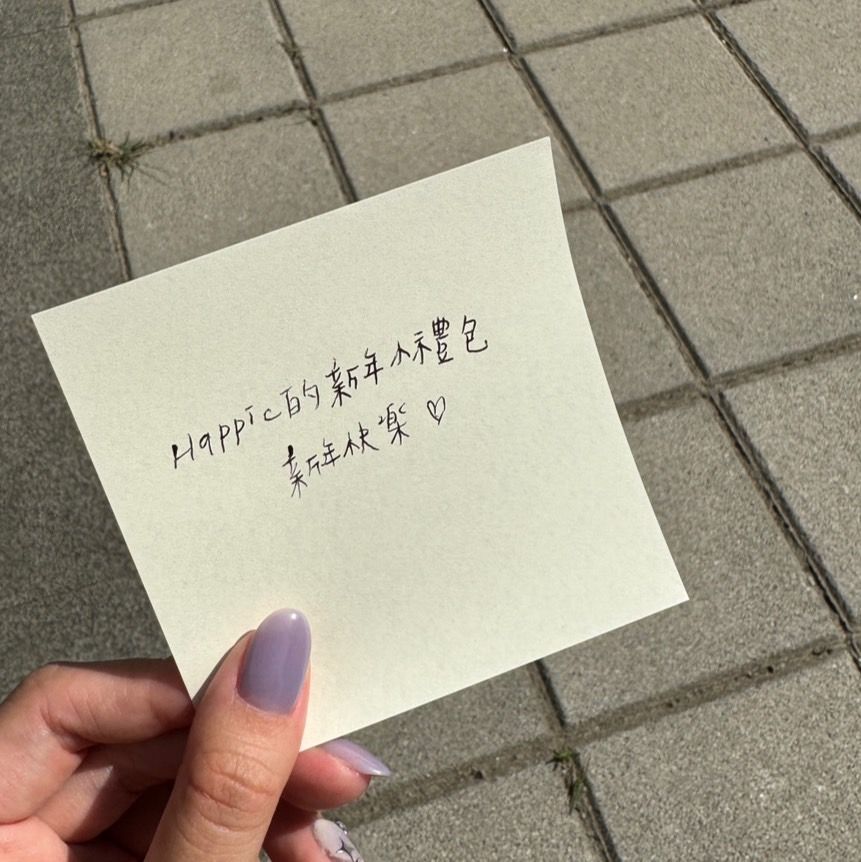 Happic的新年小禮包
新年快樂♡